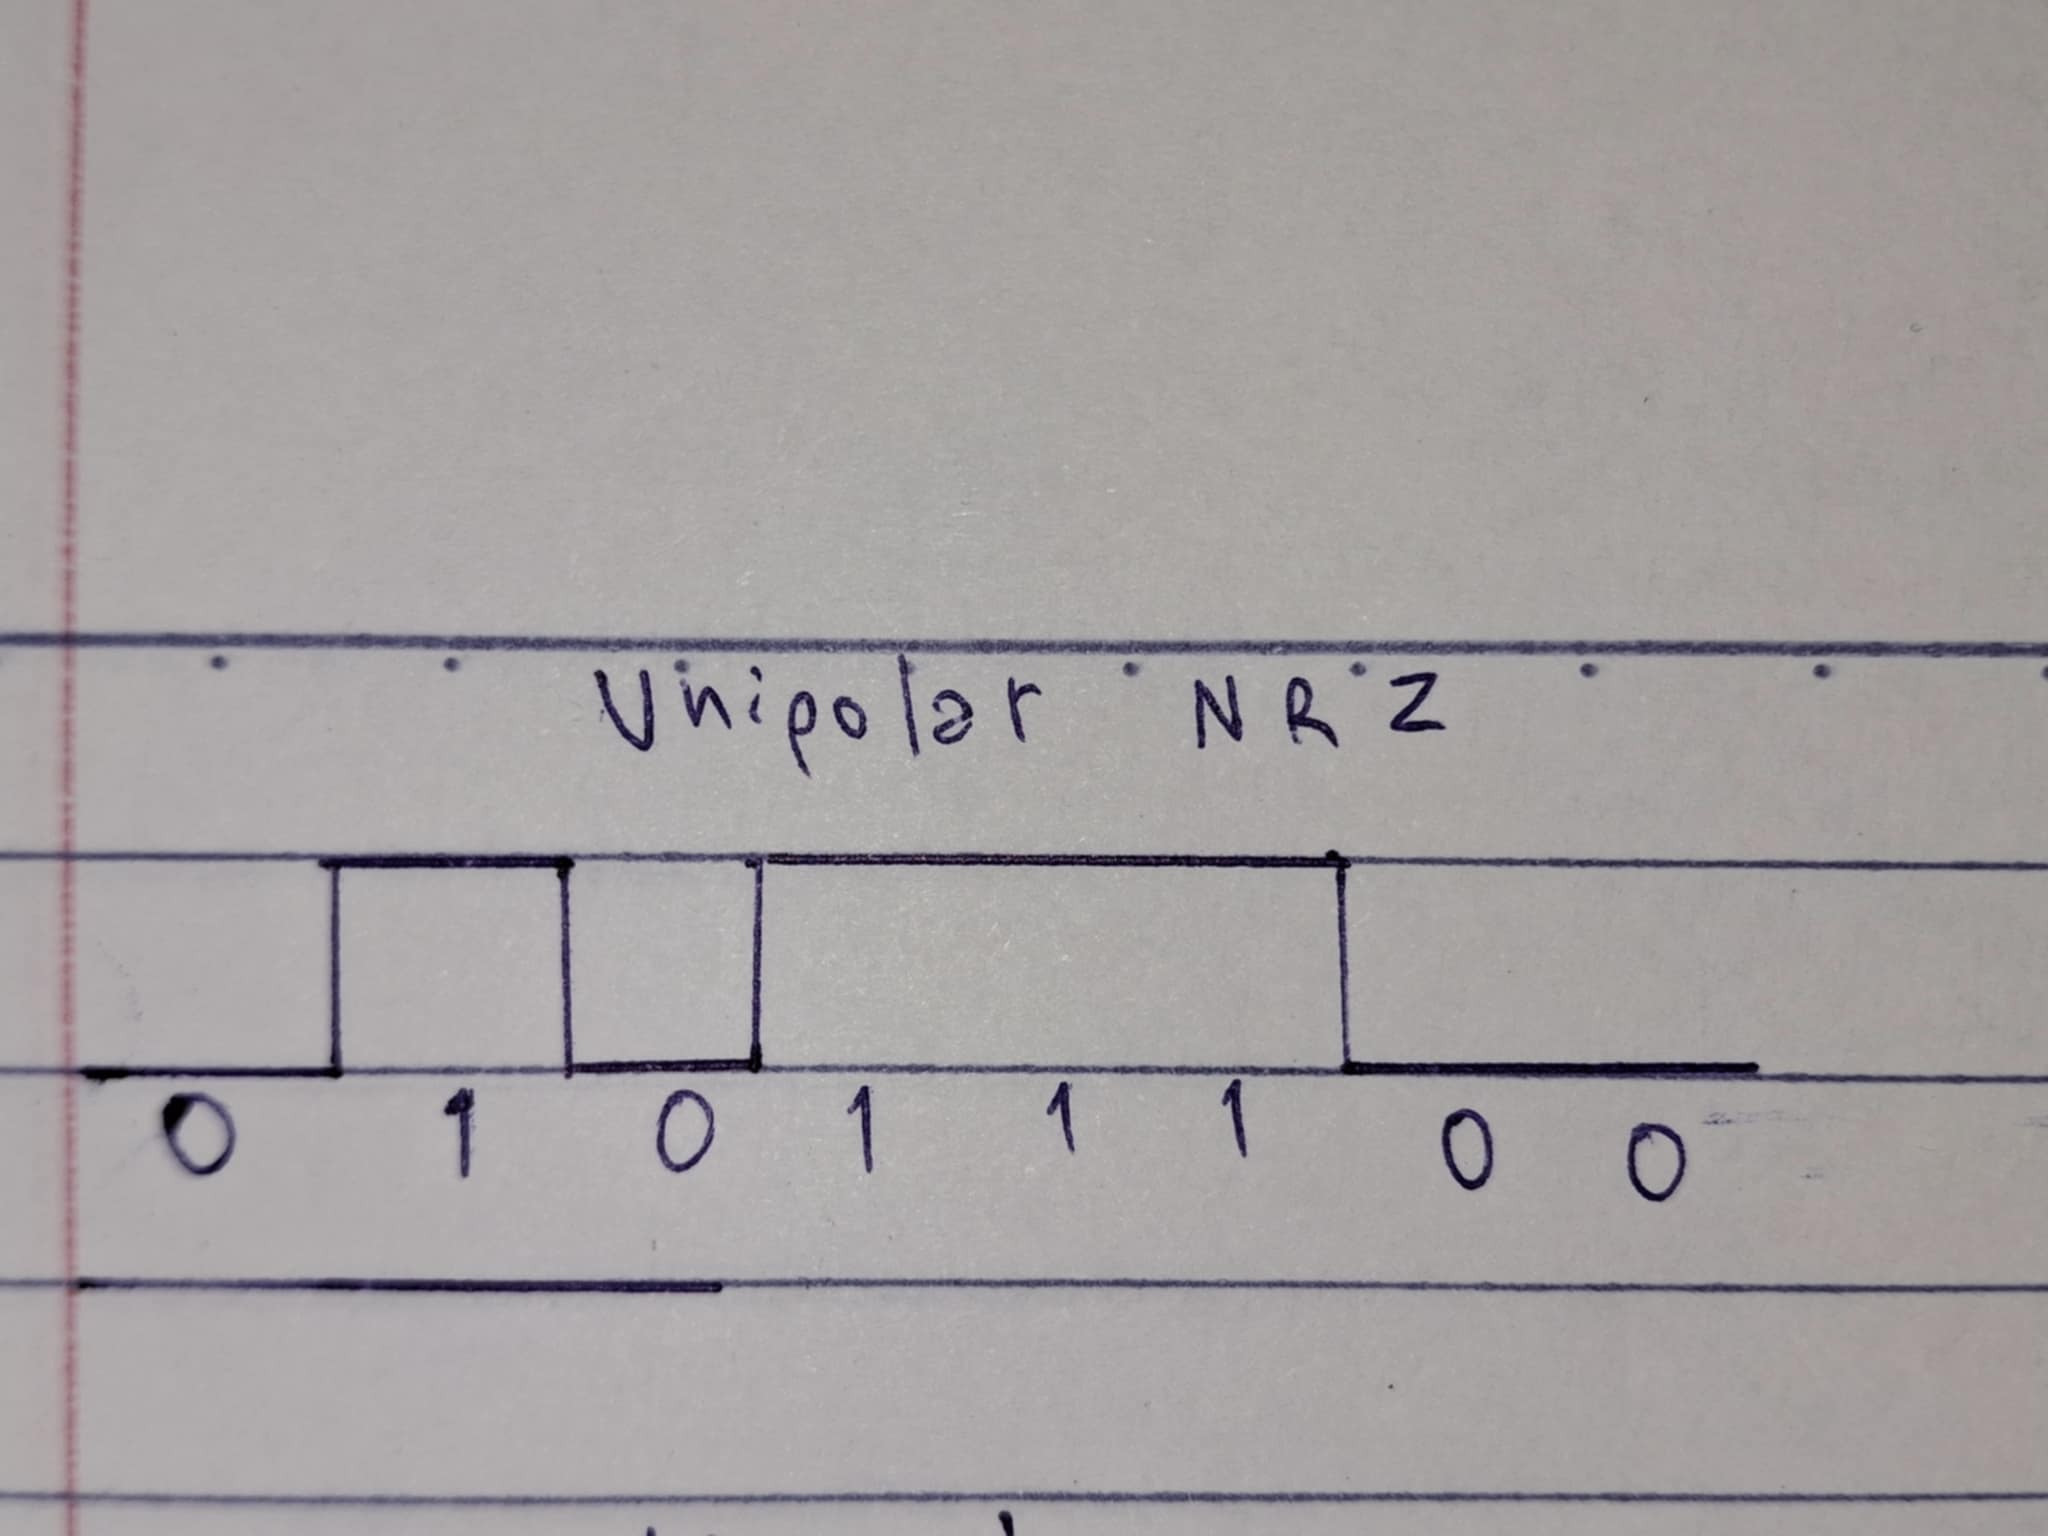 Unipolar NRZ
0 1 0 1 1 1 0 0